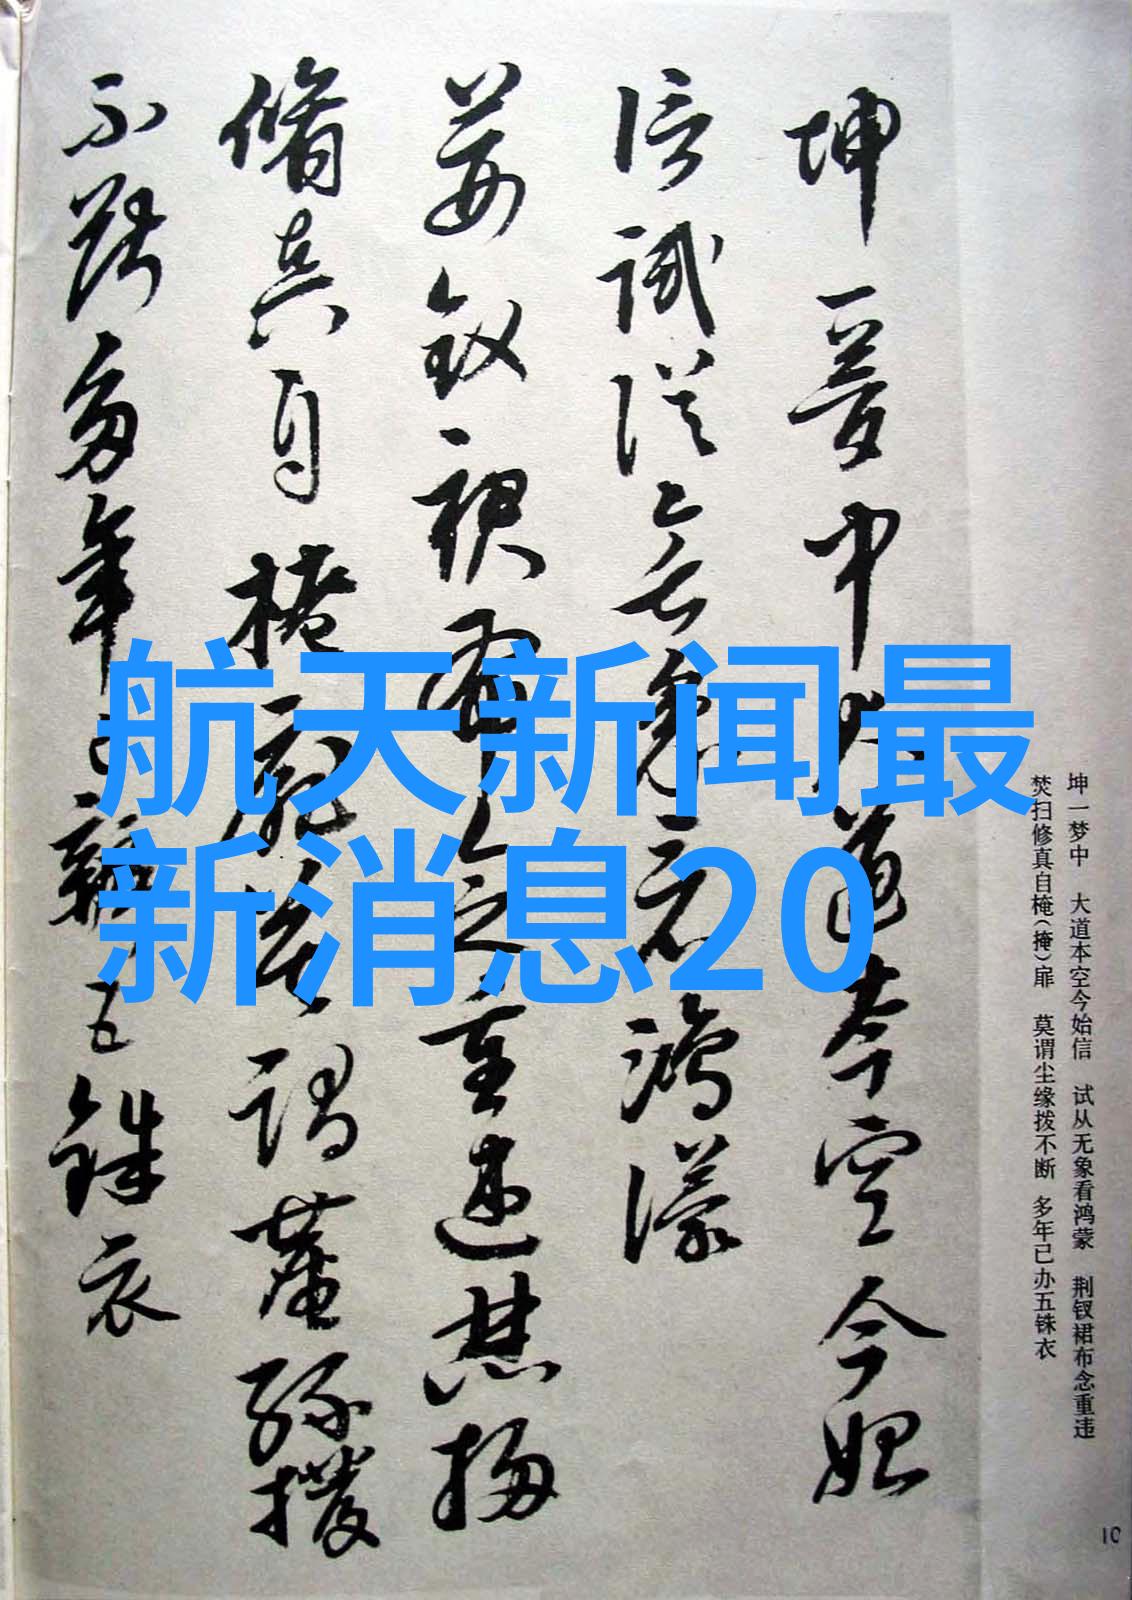 坤一夢中大道本空今始
信試從無象看鴻濛
荊釵裙布念重違焚掃
脩真自掩扉莫謂塵緣撥
不斷多年已辦五銖衣
航天新闻最
新消息20
坤一梦中　大道本空今始信　试从无象看鸿蒙　荆钗裙布念重违
焚扫修真自(掩)扉　莫谓尘缘拨不断　多年已办五铢衣
10